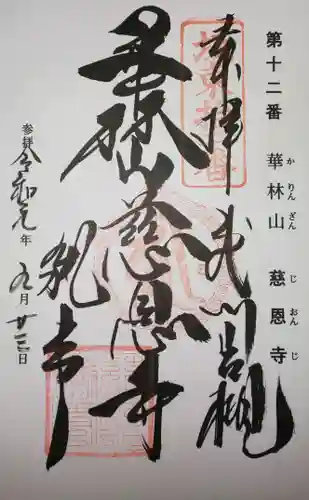 第十二番 華林山 慈恩寺
かりんざん じおんじ
奉拝 武州岩槻
華林山慈恩寺
札帋
参拝 令和元年九月廿三日